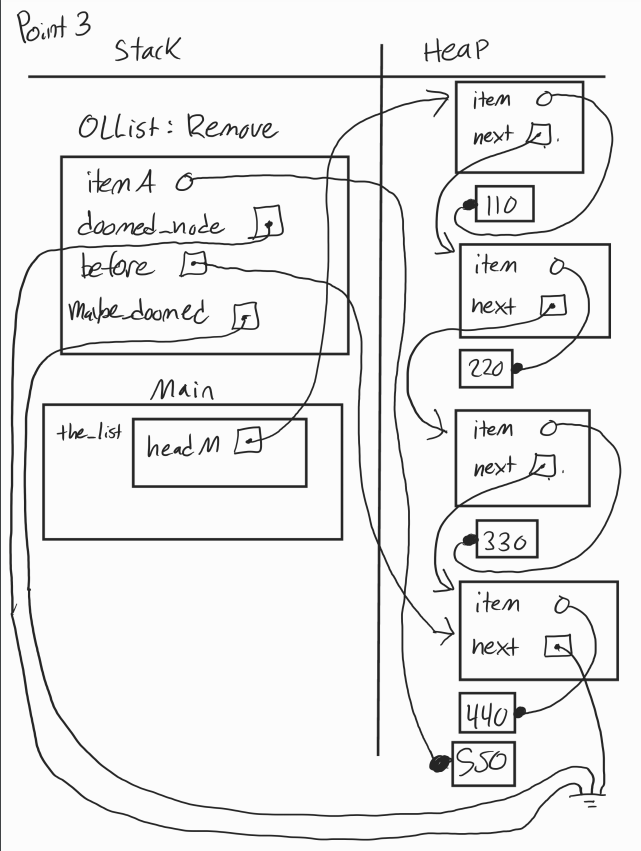 Point 3
Stack
Heap
OLList: Remove
itemA
doomed_node
before
maybe_doomed
Main
the_list
headM
item
next
110
item
next
220
item
next
330
item
next
440
550